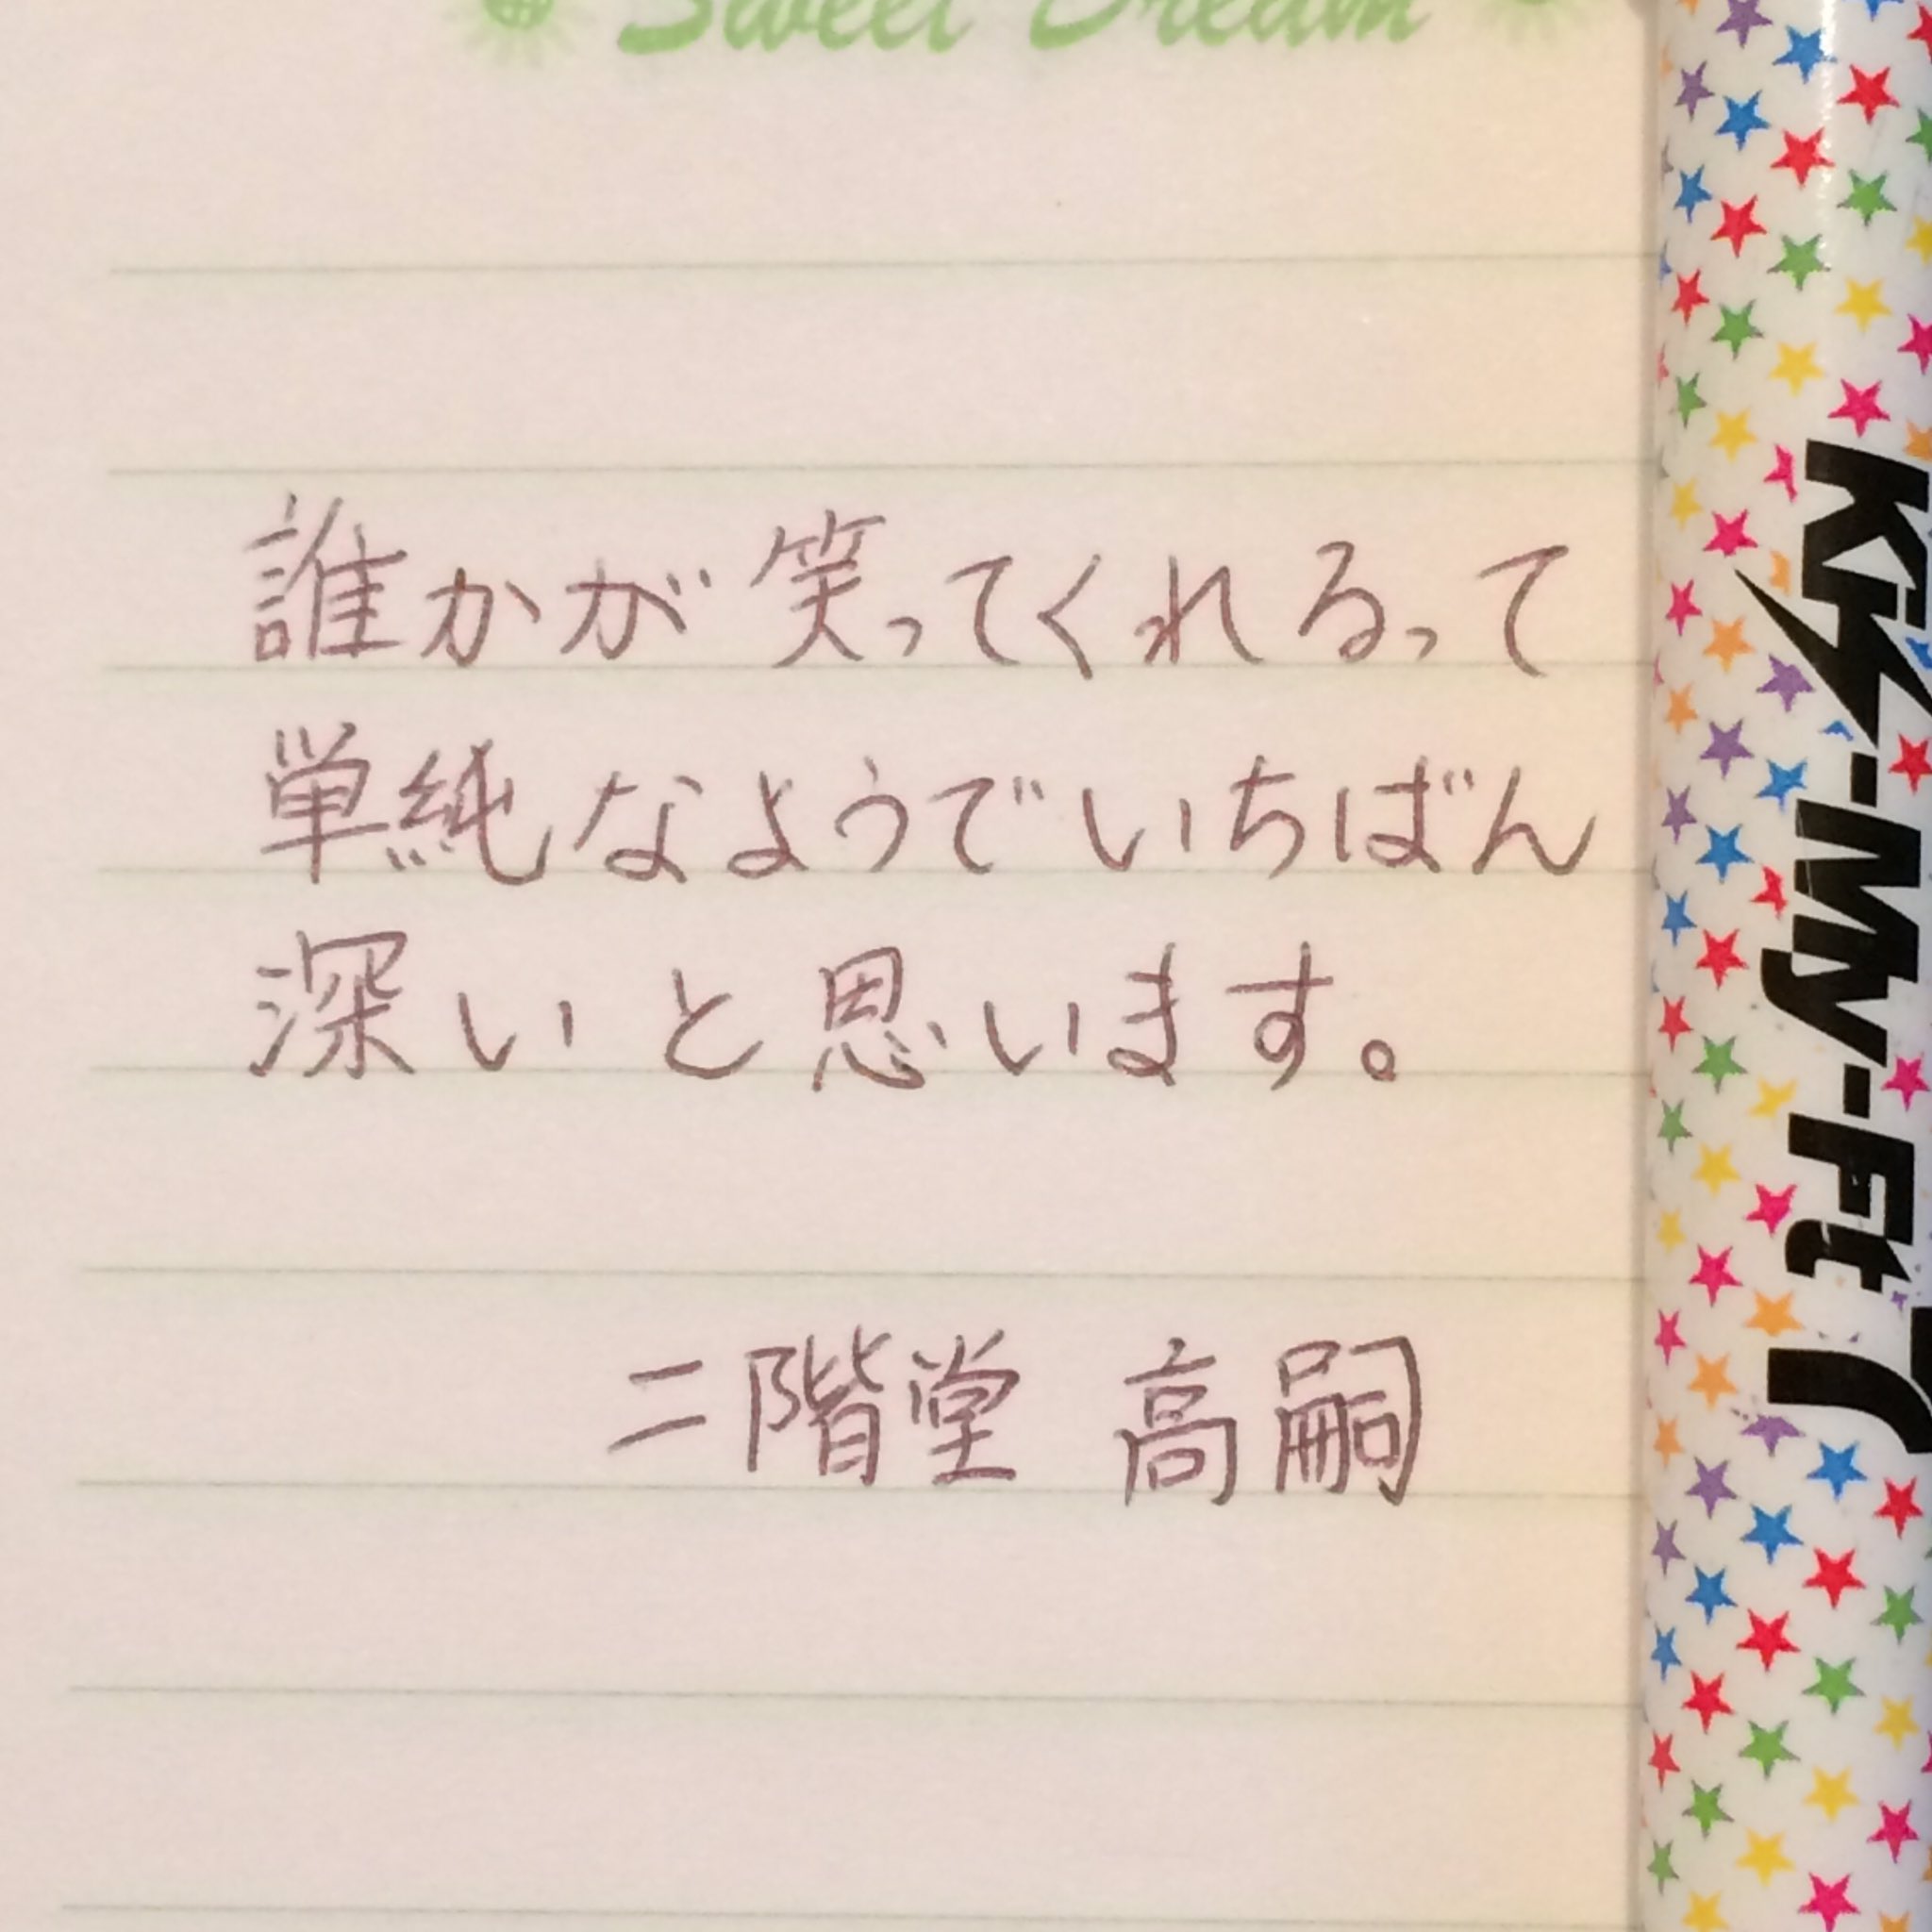 Sweet Dream
誰かが笑ってくれるって
単純なようでいちばん
深いと思います。
二階堂 高嗣
Kis-My-Ft7